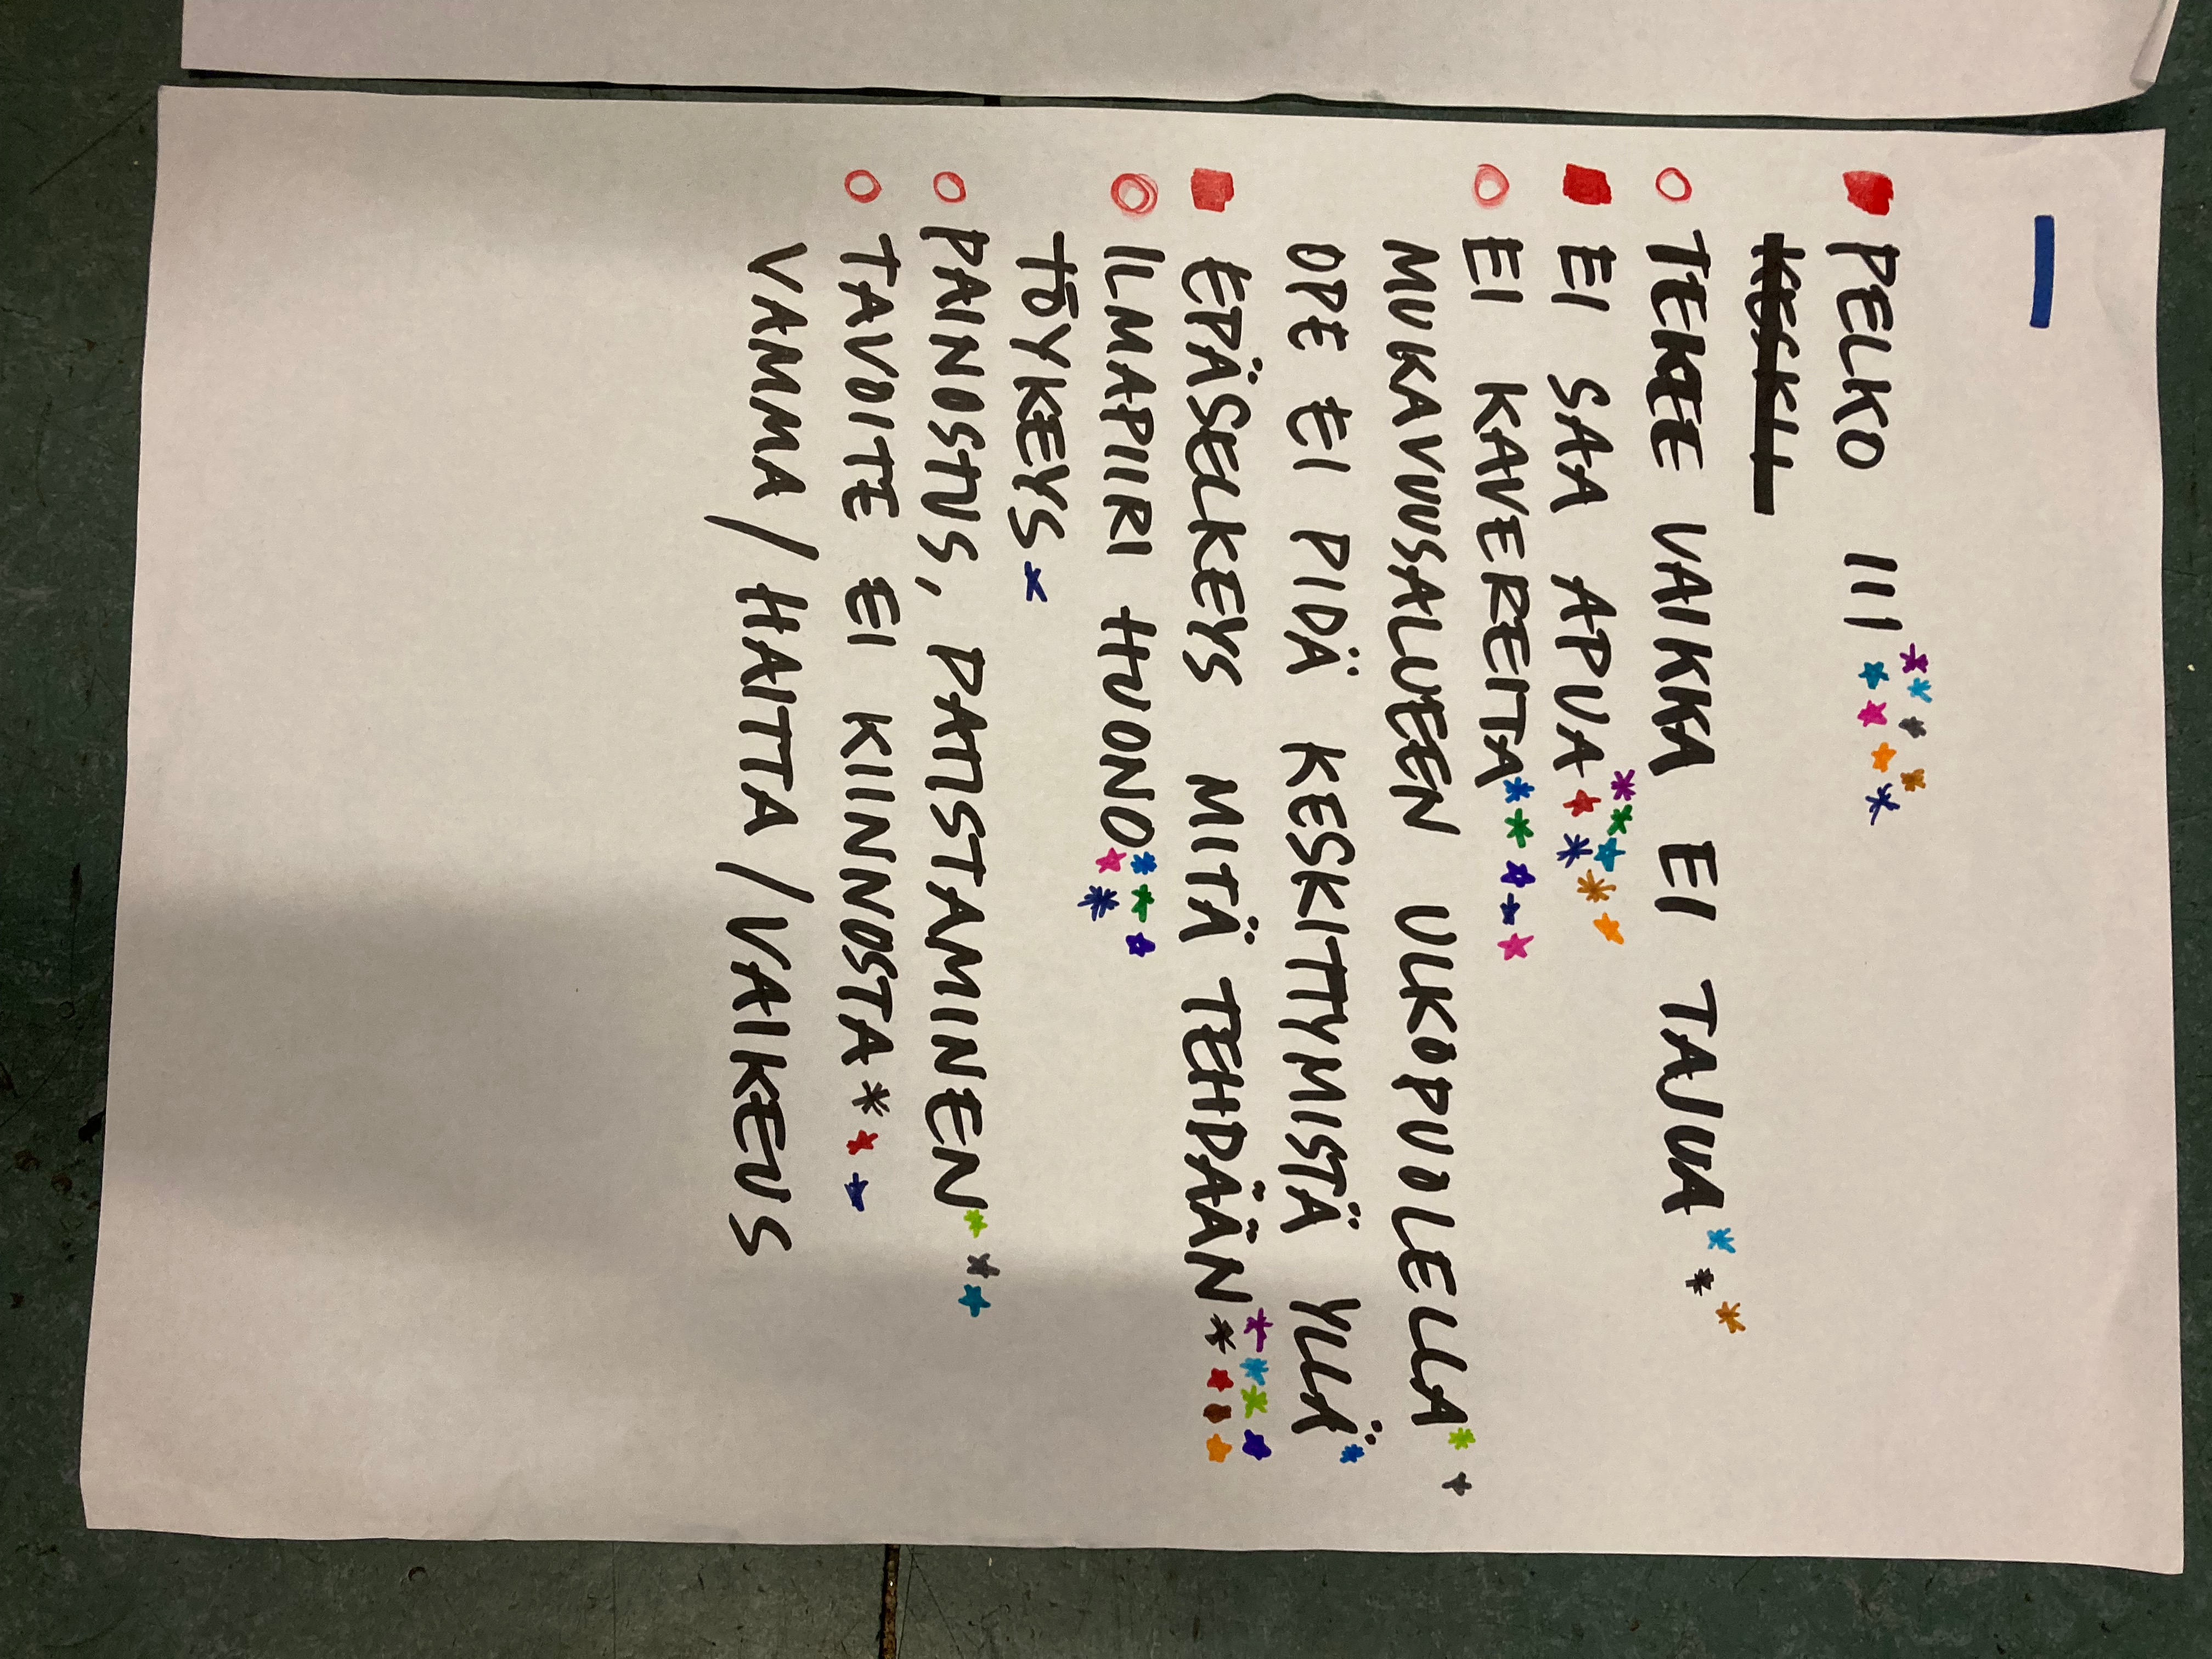 PELKO III
TEKEE VAIKKA EI TAJUA
EI SAA APUA
EI KAVEREITA
MUKAVUUSALUEEN ULKOPUOLELLA
OPE EI PIDÄ KESKITTYMISTÄ YLLÄ
EPÄSELKEYS MITÄ TEHDÄÄN
ILMAPIIRI HUONO
TÖYKEYS
PAINOSTUS, PATISTAMINEN
TAVOITE EI KIINNOSTA
VAMMA / HAITTA / VAIKEUS